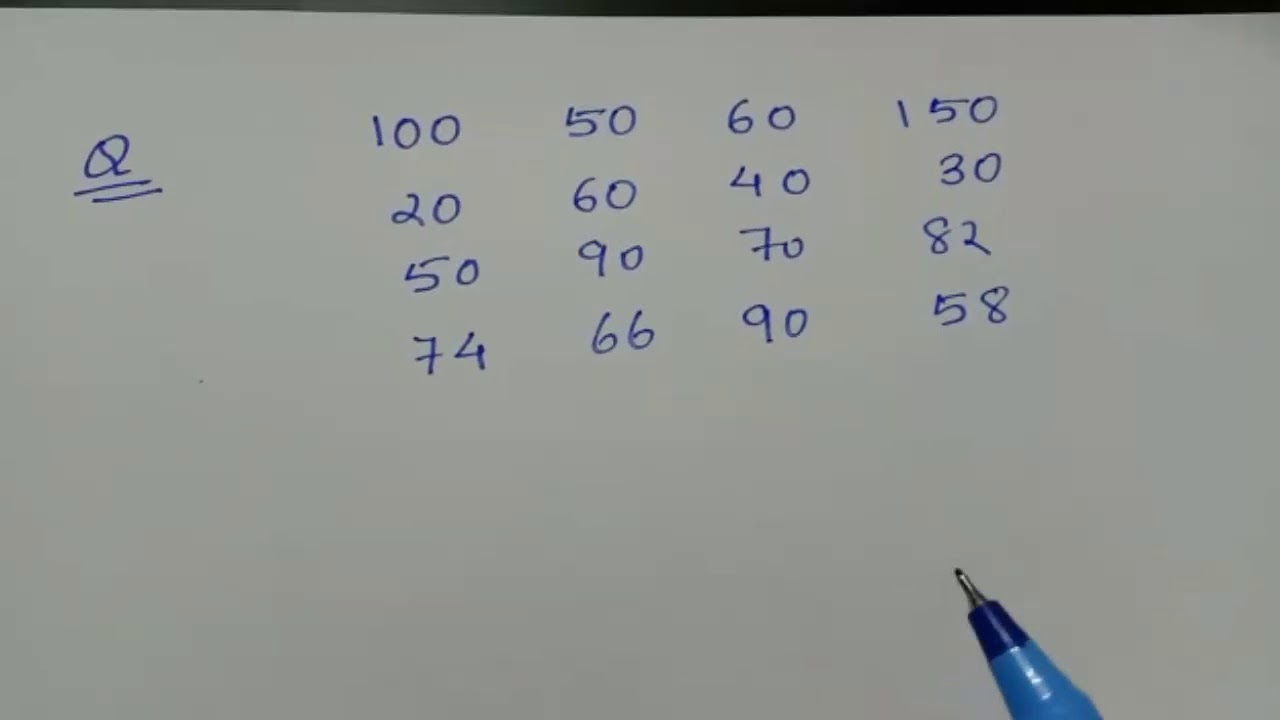 Q 100 50 60 150
20 60 40 30
50 90 70 82
74 66 90 58